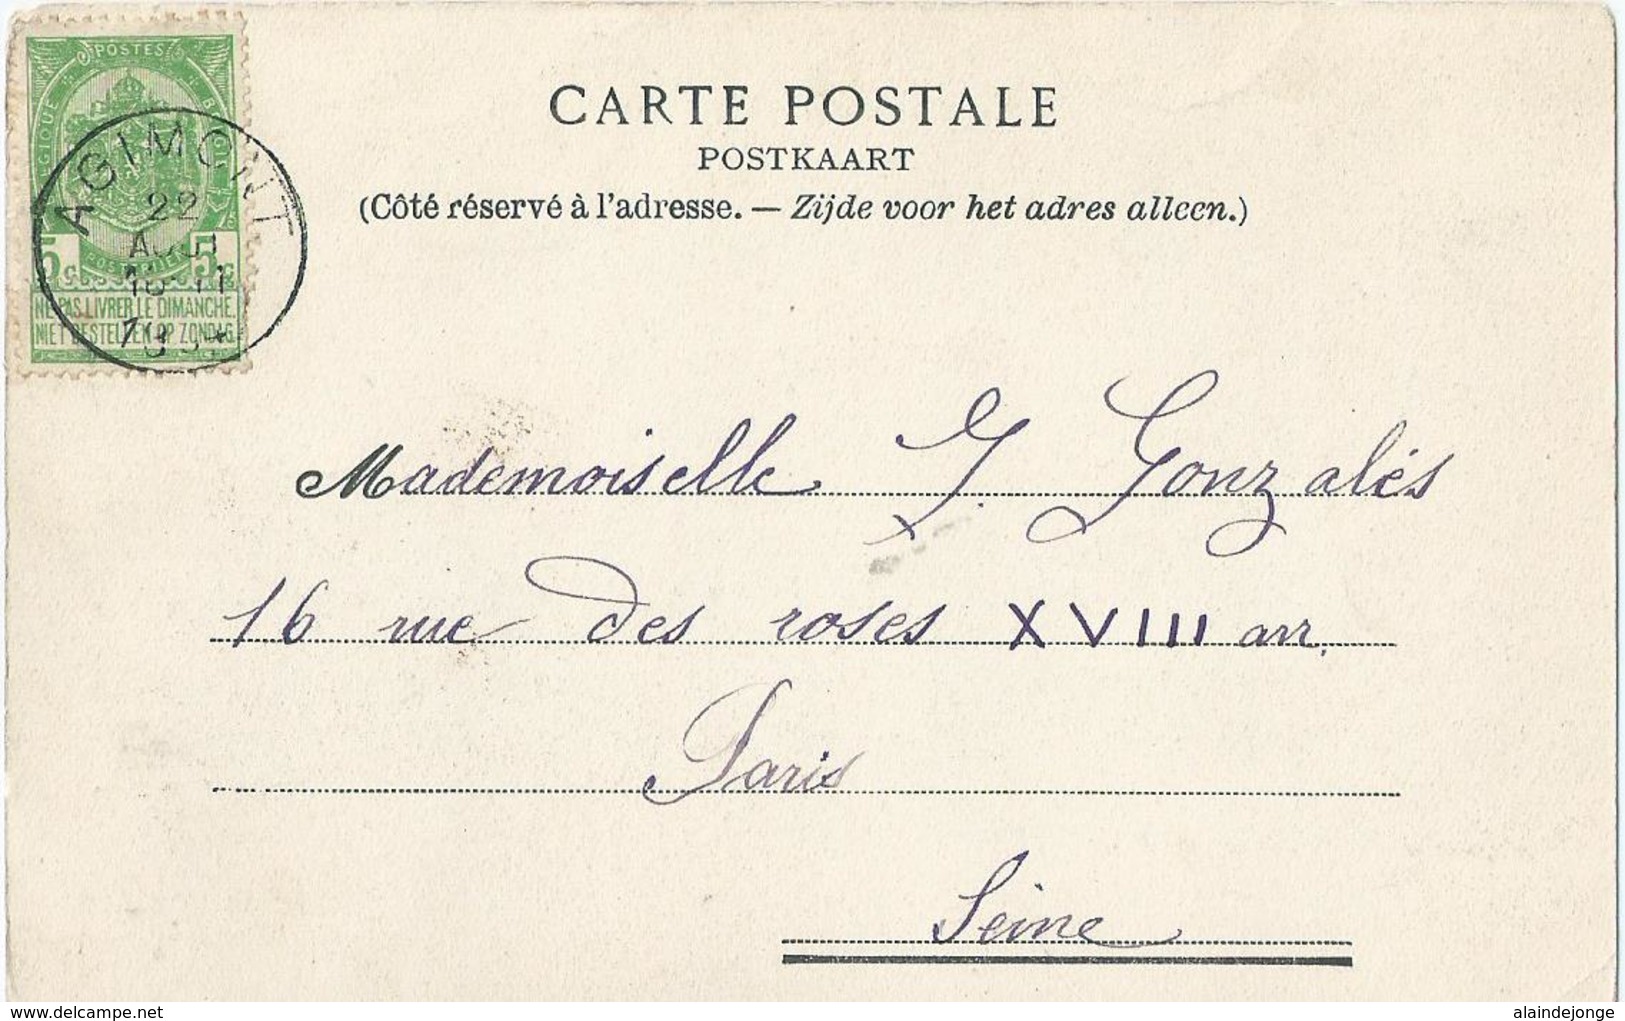 POSTES
BELGIQUE
BELGIË
5c 5c
NE PAS LIVRER LE DIMANCHE.
NIET BESTELLEN OP ZONDAG.
AGIMONT
22
AOUT
CARTE POSTALE
POSTKAART
(Côté réservé à l'adresse. — Zijde voor het adres alleen.)
Mademoiselle Y. Gonzalés
16 rue des roses XVIII arr.
Paris
Seine
www.delcampe.net
alaindejonge